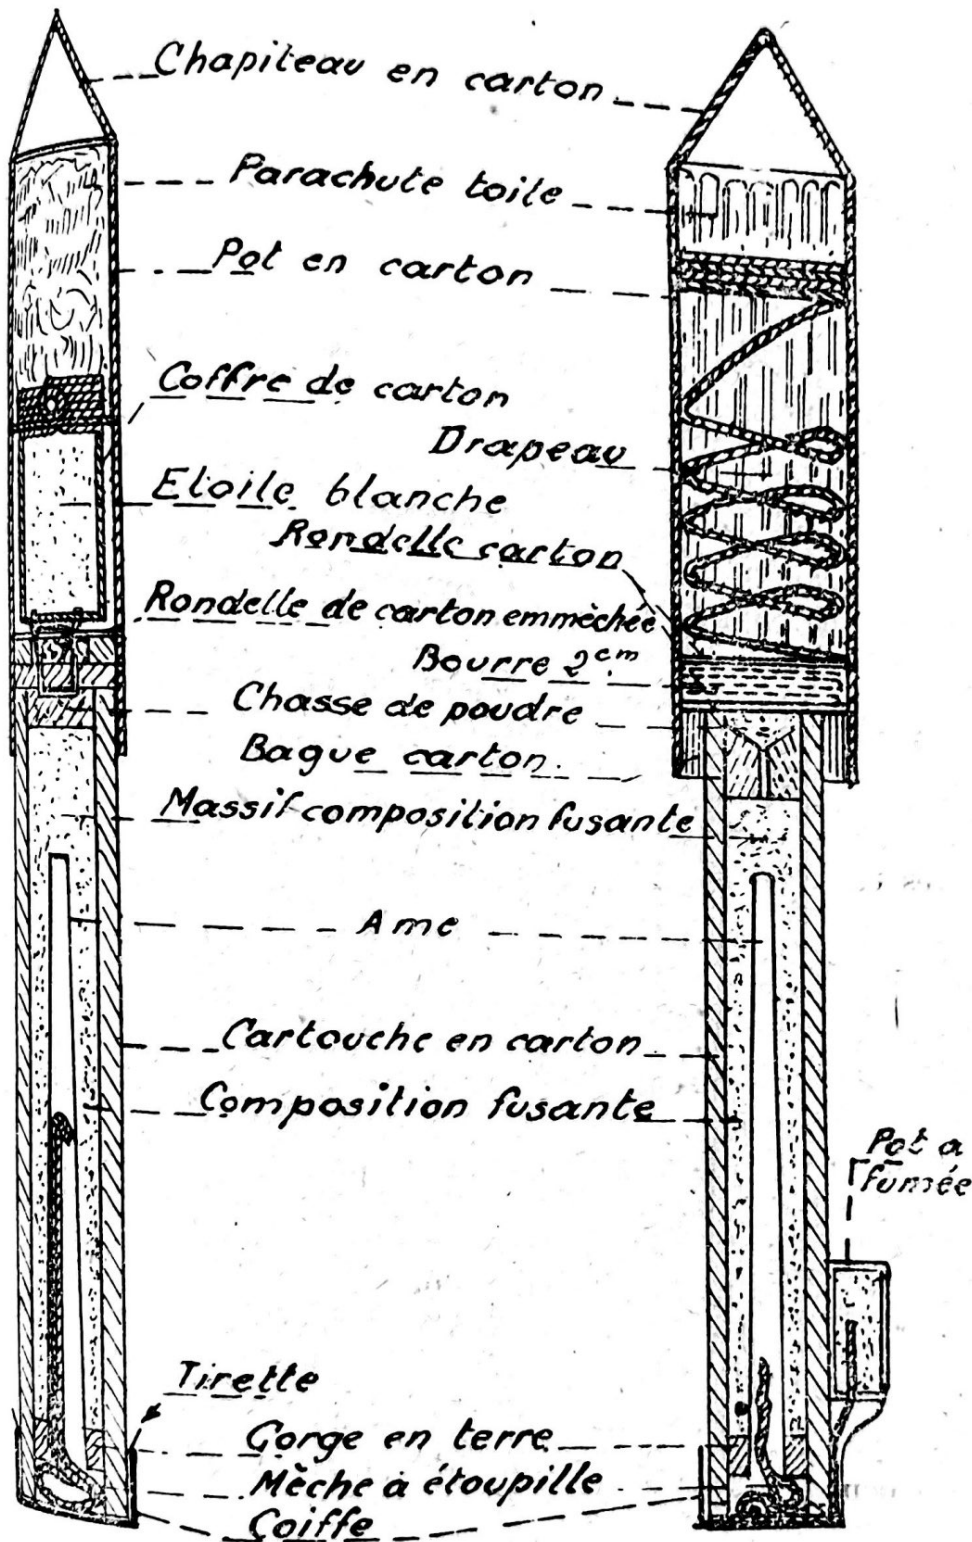 Chapiteau en carton
Parachute toile
Pot en carton
Coffre de carton
Drapeau
Etoile blanche
Rondelle carton
Rondelle de carton emmèchée
Bourre 2cm.
Chasse de poudre
Bague carton.
Massif composition fusante
Ame
Cartouche en carton
Composition fusante
Pot a
fumée
Tirette
Gorge en terre
Mèche à étoupille
Coiffe